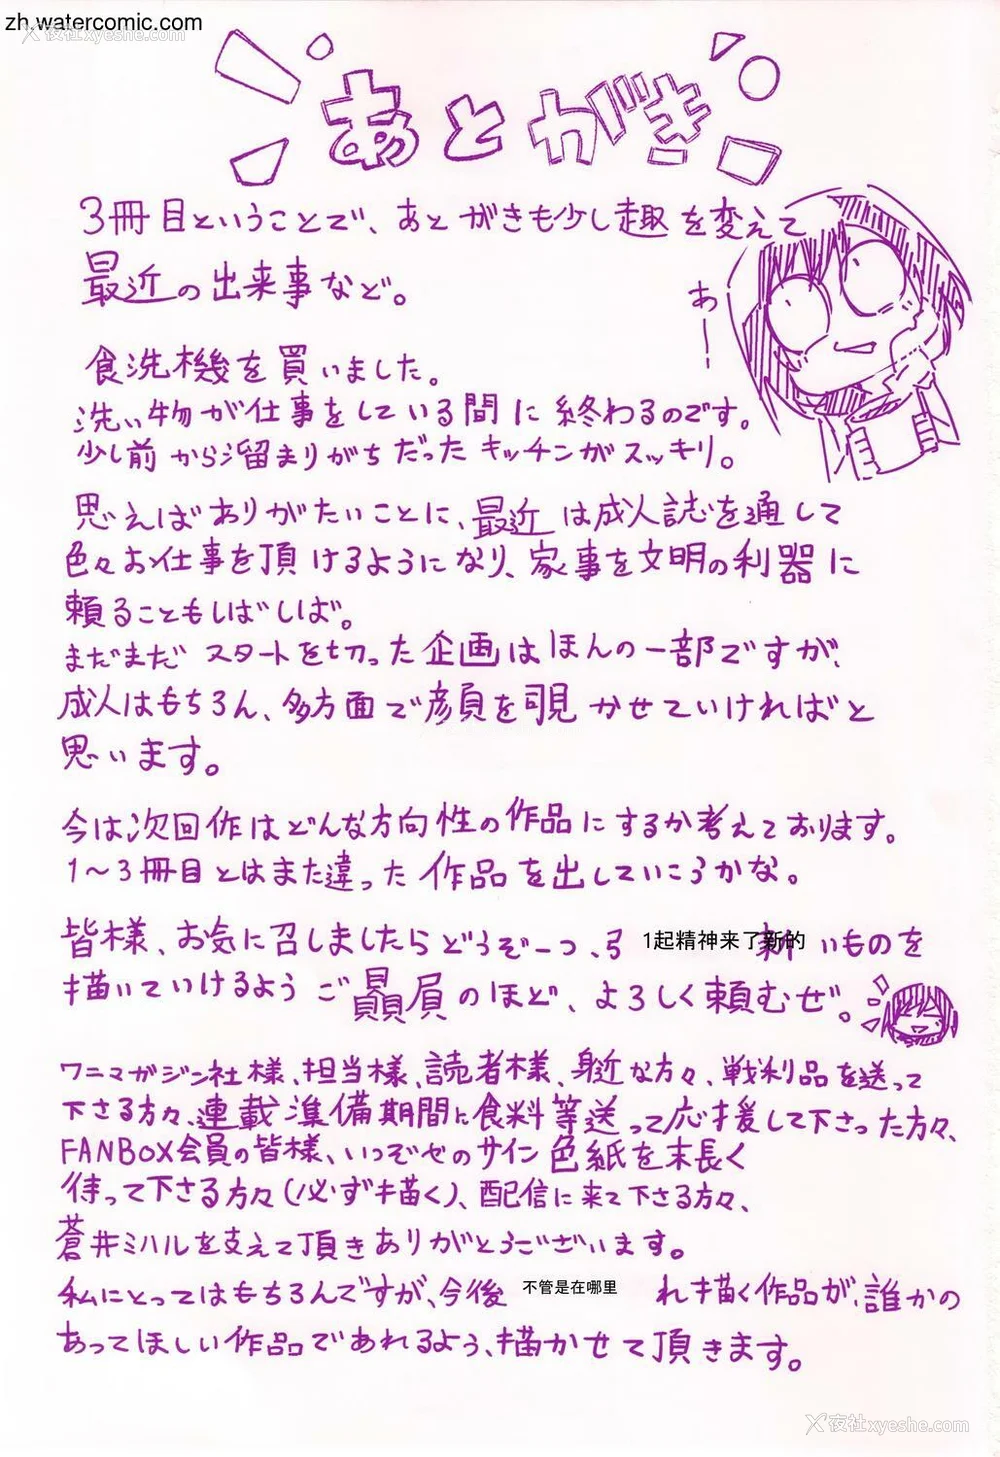 zh.watercomic.com
夜社xyeshe.com
あとがき
3冊目ということで、あとがきも少し趣を変えて
最近の出来事など。
あー
食洗機を買いました。
洗い物が仕事をしている間に終わるのです。
少し前から溜まりがちだったキッチンがスッキリ。
思えばありがたいことに、最近は成人誌を通して
色々お仕事を頂けるようになり、家事を文明の利器に
頼ることもしばしば。
まだまだスタートを切った企画はほんの一部ですが、
成人はもちろん、多方面で顔を覗かせていければと
思います。
今は次回作はどんな方向性の作品にするか考えております。
1～3冊目とはまた違った作品を出していこうかな。
皆様、お気に召しましたらどうぞ一つ、引 1起精神来了新的 いものを
描いていけるよう ご贔屓のほど、よろしく頼むぜ。
ワニマガジン社様、担当様、読者様、身近な方々、戦利品を送って
下さる方々、連載準備期間に食料等送って応援して下さった方々、
FANBOX会員の皆様、いつぞやのサイン色紙を末長く
待って下さる方々(必ず描く)、配信に来て下さる方々、
蒼井ミハルを支えて頂きありがとうございます。
私にとってはもちろんですが、今後 不管是在哪里 れ描く作品が、誰かの
あってほしい作品であれるよう、描かせて頂きます。
夜社xyeshe.com